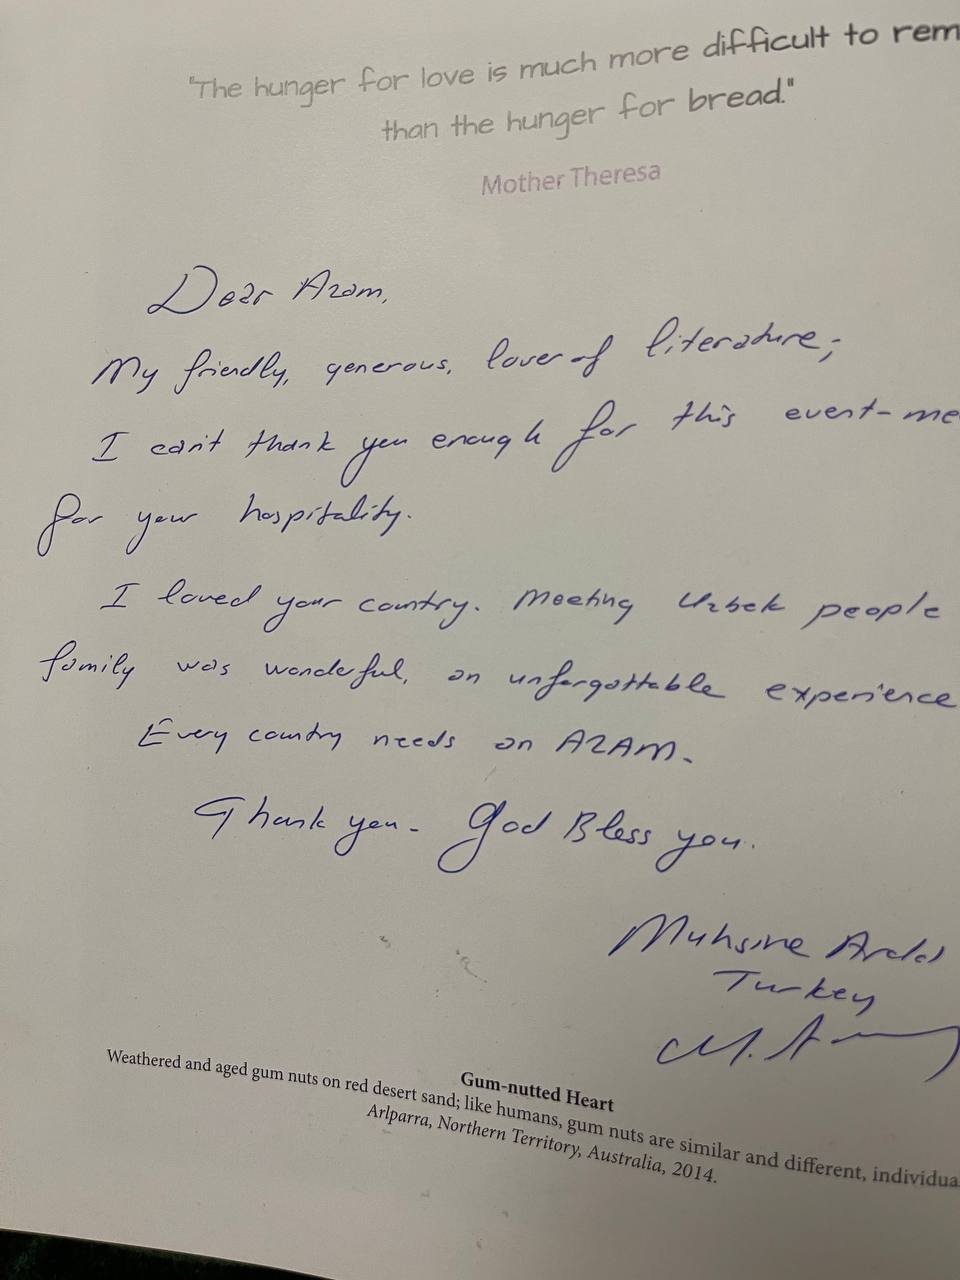 "The hunger for love is much more difficult to rem
than the hunger for bread."
Mother Theresa
Dear Azam,
My friendly, generous, lover of literature;
I can't thank you enough for this event-me
for your hospitality.
I loved your country. Meeting Uzbek people
family was wonderful, an unforgottable experience
Every country needs an AZAM.
Thank you. God Bless you.
Muhsine Arda
Turkey
M. A
Gum-nutted Heart
Weathered and aged gum nuts on red desert sand; like humans, gum nuts are similar and different, individua
Arlparra, Northern Territory, Australia, 2014.